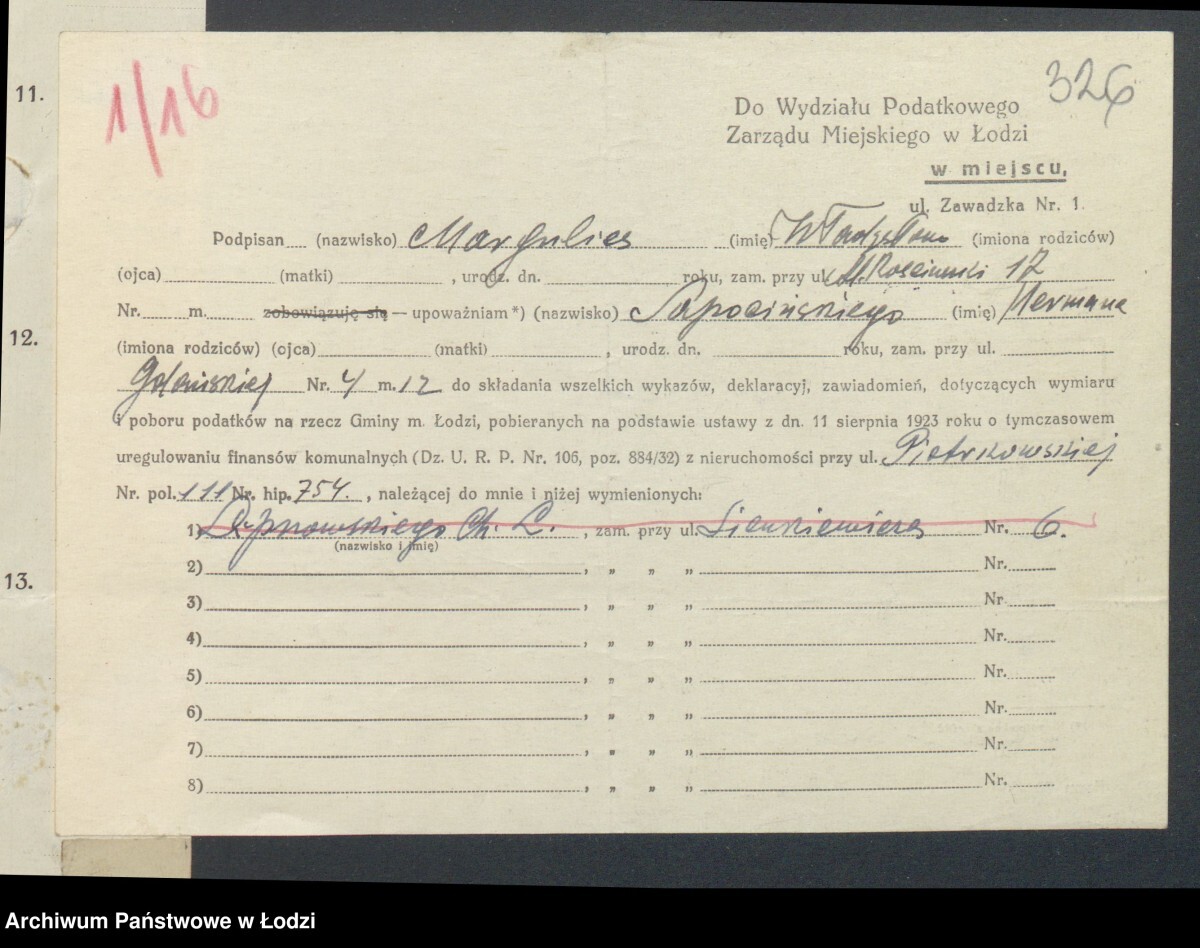 11.
12.
13.
1/16
326
Do Wydziału Podatkowego
Zarządu Miejskiego w Łodzi
w miejscu,
ul. Zawadzka Nr. 1
Podpisan (nazwisko) Margulies (imię) (imiona rodziców)
(ojca) (matki) , urodz. dn. roku, zam. przy ul. 17
Nr. m. zobowiązuję się — upoważniam *) (nazwisko) Sapocińskiego (imię) Hermana
(imiona rodziców) (ojca) (matki) , urodz. dn. roku, zam. przy ul.
Gdańskiej Nr. 4 m. 12 do składania wszelkich wykazów, deklaracyj, zawiadomień, dotyczących wymiaru
i poboru podatków na rzecz Gminy m. Łodzi, pobieranych na podstawie ustawy z dn. 11 sierpnia 1923 roku o tymczasowem
uregulowaniu finansów komunalnych (Dz. U. R. P. Nr. 106, poz. 884/32) z nieruchomości przy ul. Piotrkowskiej
Nr. pol. 111 Nr. hip. 754. , należącej do mnie i niżej wymienionych:
1) Ch. L. , zam. przy ul. Sienkiewicza Nr. 6.
(nazwisko i imię)
2) , „ „ „ Nr.
3) , „ „ „ Nr.
4) , „ „ „ Nr.
5) , „ „ „ Nr.
6) , „ „ „ Nr.
7) , „ „ „ Nr.
8) , „ „ „ Nr.
Archiwum Państwowe w Łodzi